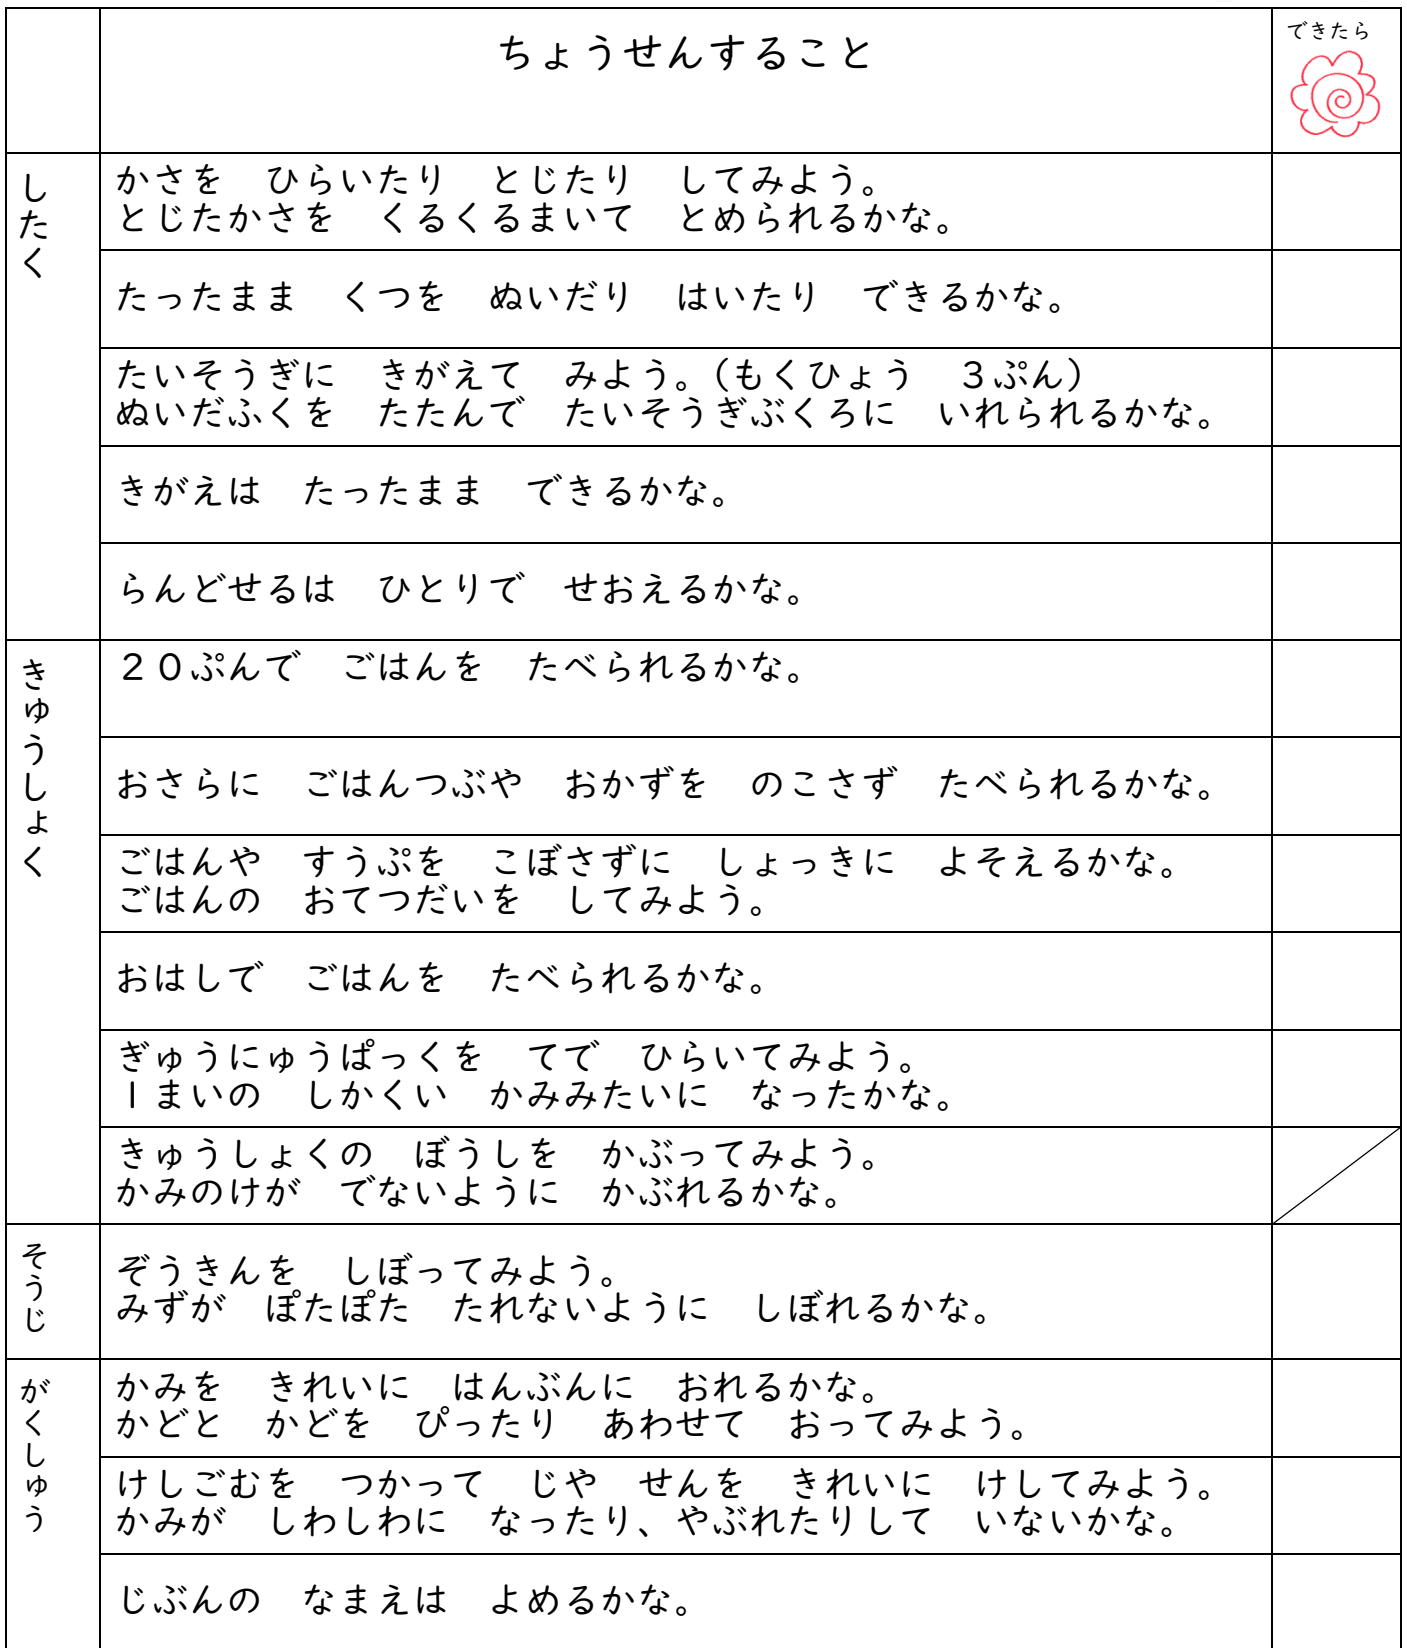 ちょうせんすること
できたら
したく
かさを　ひらいたり　とじたり　してみよう。
とじたかさを　くるくるまいて　とめられるかな。
たったまま　くつを　ぬいだり　はいたり　できるかな。
たいそうぎに　きがえて　みよう。（もくひょう　３ぷん）
ぬいだふくを　たたんで　たいそうぎぶくろに　いれられるかな。
きがえは　たったまま　できるかな。
らんどせるは　ひとりで　せおえるかな。
きゅうしょく
２０ぷんで　ごはんを　たべられるかな。
おさらに　ごはんつぶや　おかずを　のこさず　たべられるかな。
ごはんや　すうぷを　こぼさずに　しょっきに　よそえるかな。
ごはんの　おてつだいを　してみよう。
おはしで　ごはんを　たべられるかな。
ぎゅうにゅうぱっくを　てで　ひらいてみよう。
１まいの　しかくい　かみみたいに　なったかな。
きゅうしょくの　ぼうしを　かぶってみよう。
かみのけが　でないように　かぶれるかな。
そうじ
ぞうきんを　しぼってみよう。
みずが　ぽたぽた　たれないように　しぼれるかな。
がくしゅう
かみを　きれいに　はんぶんに　おれるかな。
かどと　かどを　ぴったり　あわせて　おってみよう。
けしごむを　つかって　じや　せんを　きれいに　けしてみよう。
かみが　しわしわに　なったり、やぶれたりして　いないかな。
じぶんの　なまえは　よめるかな。